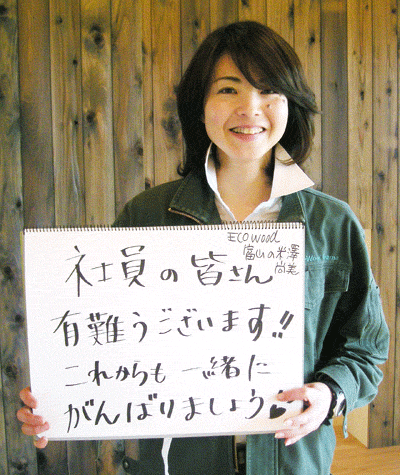 ECO wood
富山の米澤
尚美
社員の皆さん
有難うございます!!
これからも一緒に
がんばりましょう♥